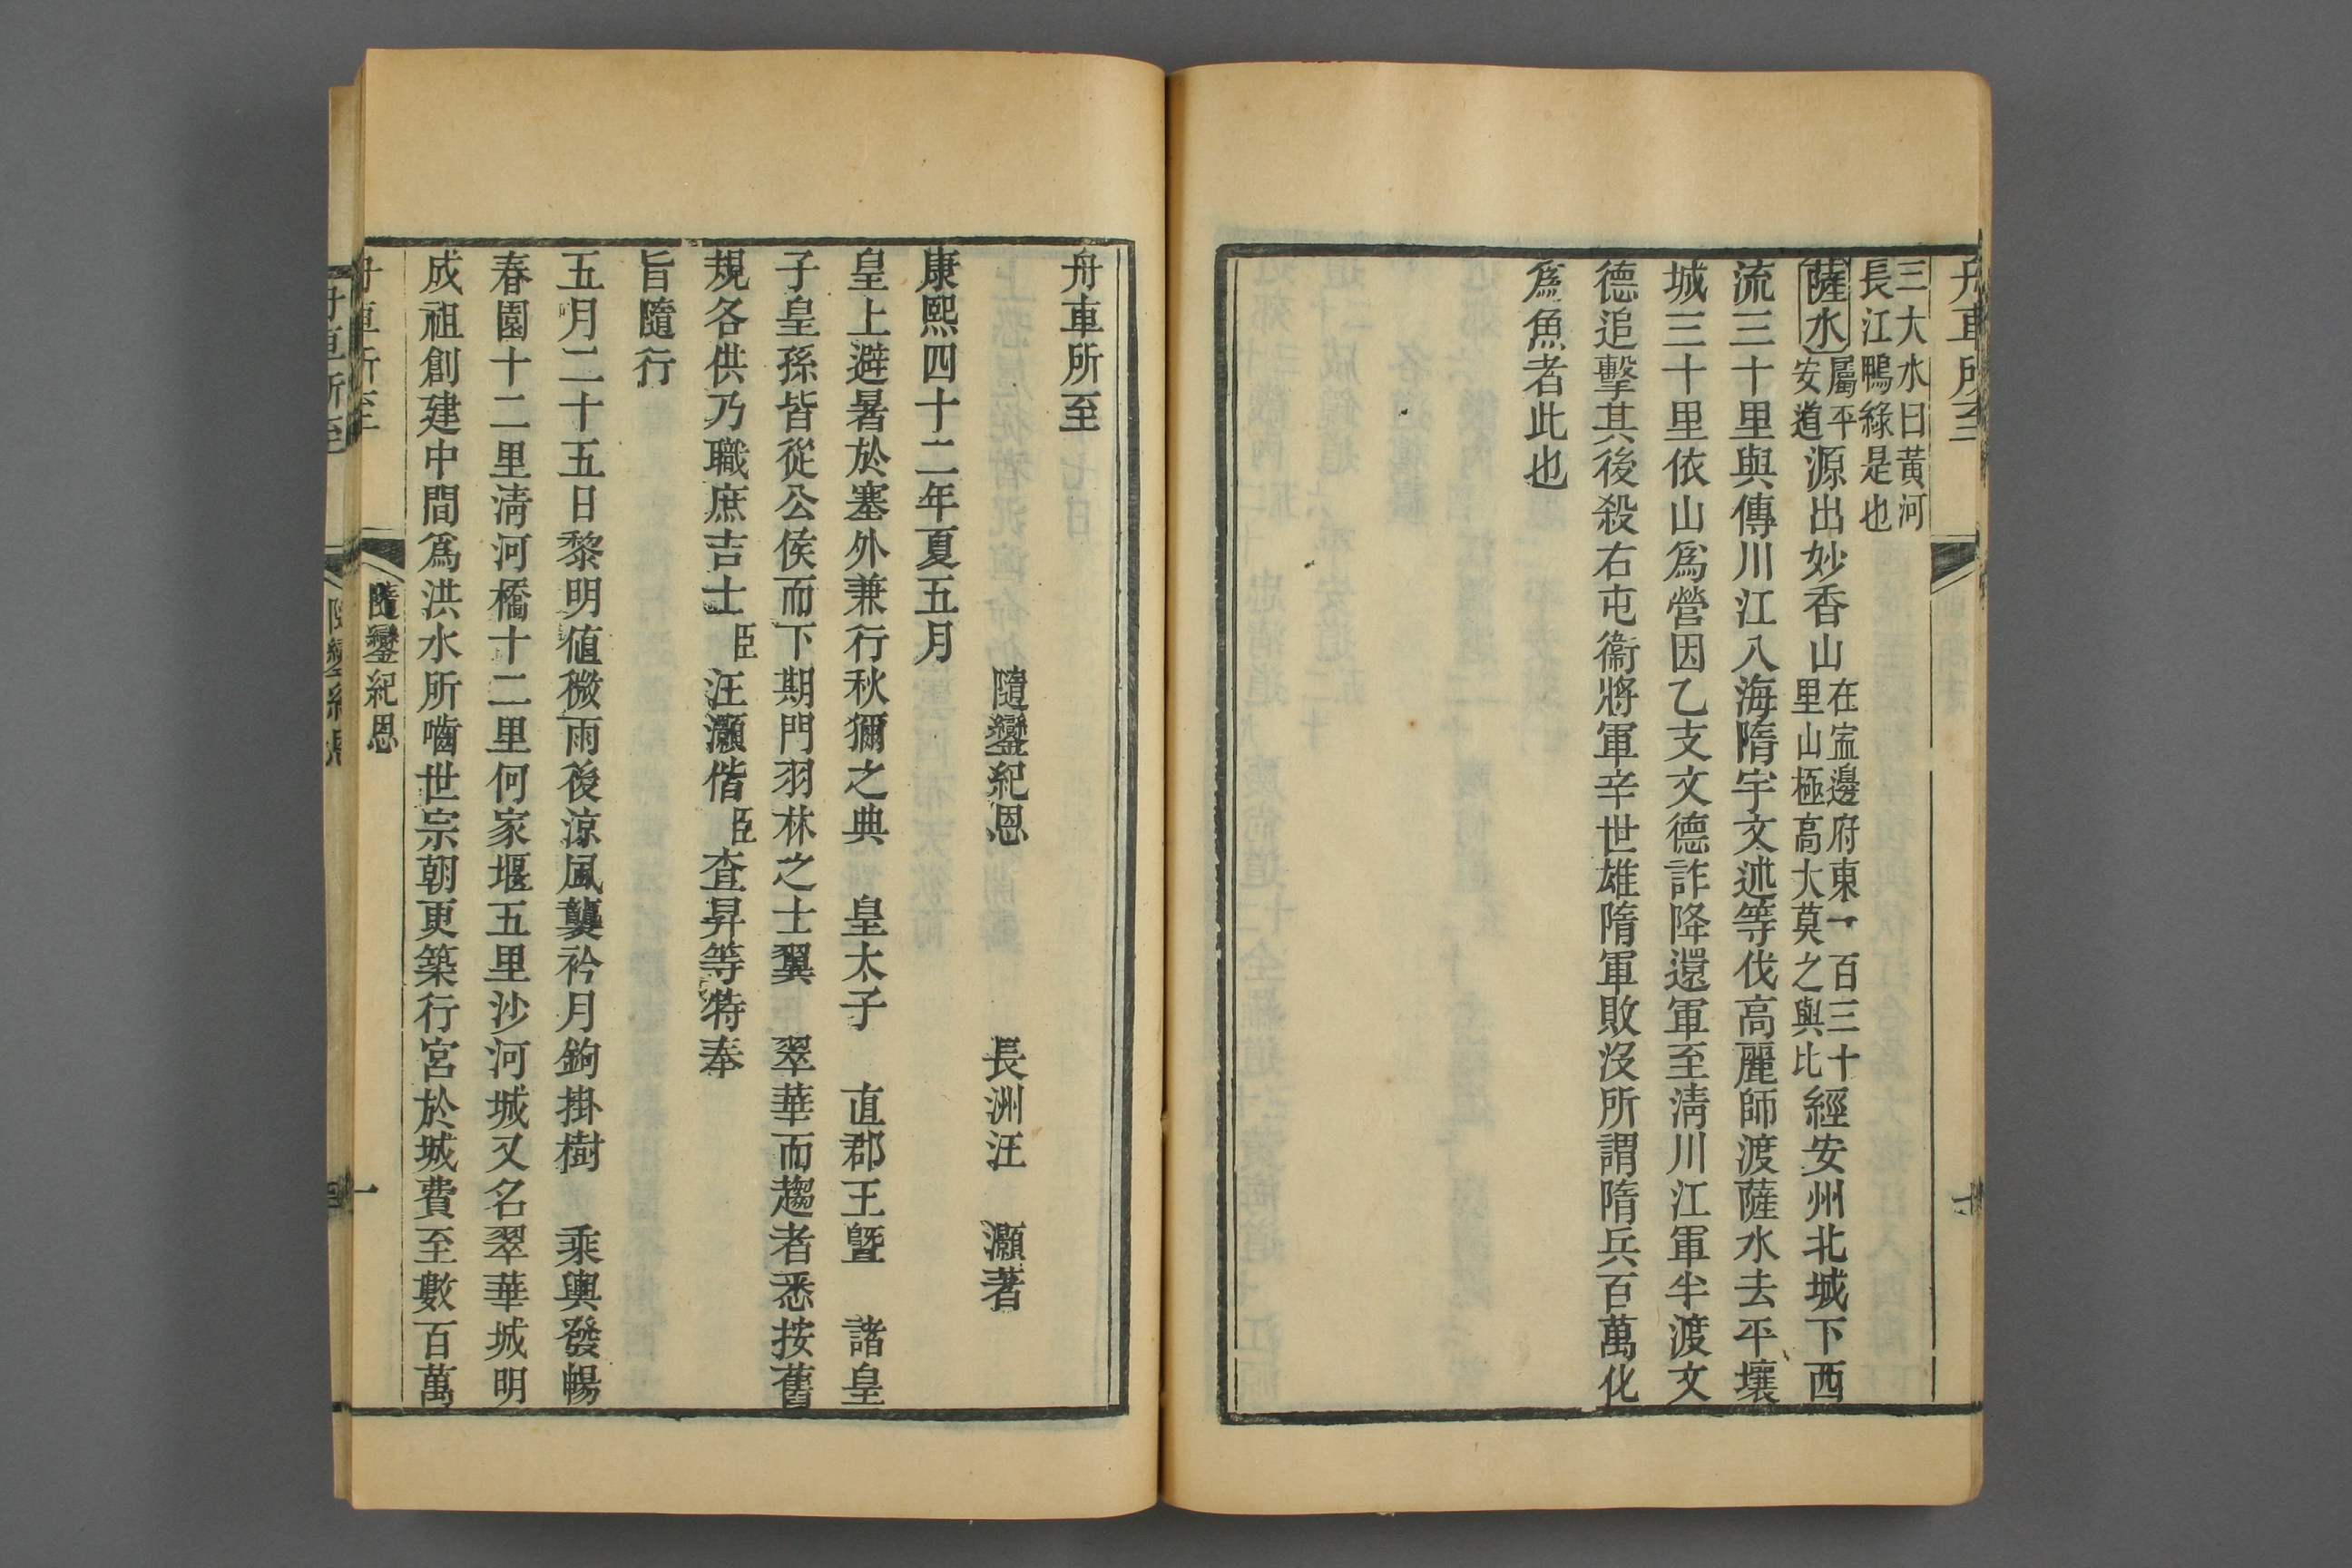 舟車所至
三大水曰黃河
長江鴨綠是也
薩水屬平安道源出妙香山在寍邊府東一百三十里山極高大莫之與比經安州北城下西
流三十里與傳川江入海隋宇文述等伐高麗師渡薩水去平壤
城三十里依山爲營因乙支文德詐降還軍至淸川江軍半渡文
德追擊其後殺右屯衞將軍辛世雄隋軍敗沒所謂隋兵百萬化
爲魚者此也
舟車所至
隨鑾紀恩 長洲汪 灝著
康熙四十二年夏五月
皇上避暑於塞外兼行秋獮之典 皇太子 直郡王曁 諸皇
子皇孫皆從公侯而下期門羽林之士翼 翠華而趨者悉按舊
規各供乃職庶吉士臣汪灝偕臣查昇等特奉
旨隨行
五月二十五日黎明値微雨後涼風襲衿月鉤掛樹 乘輿發暢
春園十二里淸河橋十二里何家堰五里沙河城又名翠華城明
成祖創建中間爲洪水所嚙世宗朝更築行宮於城費至數百萬
舟車所至
隨鑾紀恩
一